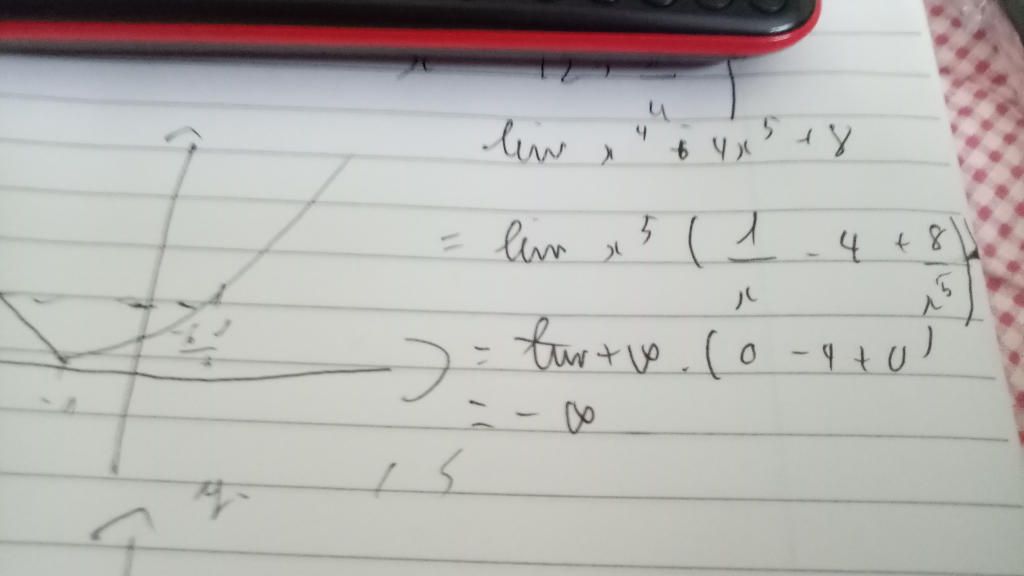 lim x⁴ - 4x⁵ + 8
= lim x⁵ ( 1/x - 4 + 8/x⁵ )
= lim +∞ . ( 0 - 4 + 0 )
= - ∞